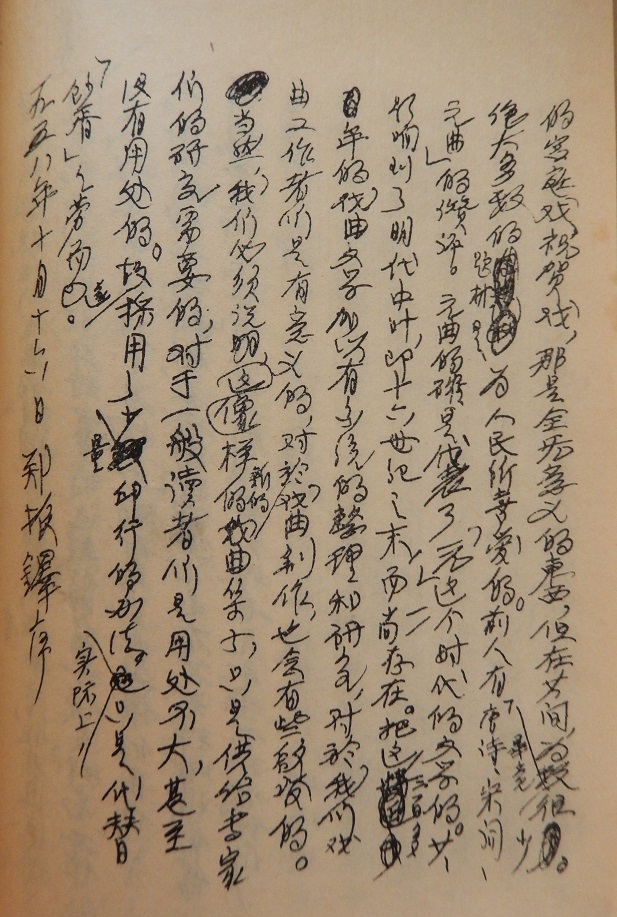 的宫廷戏,祝贺戏,那是全无意义的东西,但在其间,为数很少。
绝大多数的题材是为人民所喜爱的。前人有“唐诗、宋词、
元曲”的赞评。元曲的确是代表了“元”这个时代的文学的。其
影响到了明代中叶,即十六世纪之末,而尚存在。把这三百多
年的戏曲文学加以有系统的整理和研究,对于我们戏
曲工作者们是有意义的,对于戏曲创作,也会有些启发的。
当然,我们必须说明,这样的新的戏曲集子,只是供给专家
们的研究需要的,对于一般读者们是用处不大,甚至
没有用处的。故採用了少量印行的办法,实际上,只是代替
“钞胥”之劳而已。
一九五八年十月十六日 郑振铎序